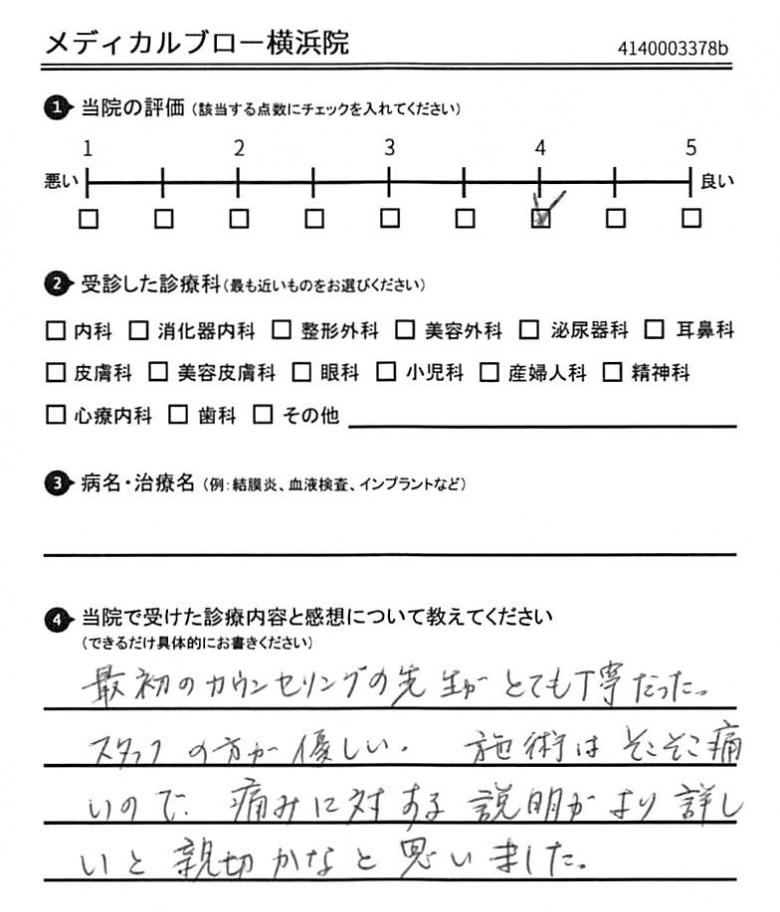 メディカルブロー横浜院
4140003378b
1 当院の評価(該当する点数にチェックを入れてください)
1 2 3 4 5
悪い 良い
2 受診した診療科(最も近いものをお選びください)
内科 消化器内科 整形外科 美容外科 泌尿器科 耳鼻科
皮膚科 美容皮膚科 眼科 小児科 産婦人科 精神科
心療内科 歯科 その他
3 病名・治療名(例:結膜炎、血液検査、インプラントなど)
4 当院で受けた診療内容と感想について教えてください
(できるだけ具体的にお書きください)
最初のカウンセリングの先生がとても丁寧だった。
スタッフの方が優しい。 施術はそこそこ痛
いので、痛みに対する説明がより詳し
いと親切かなと思いました。